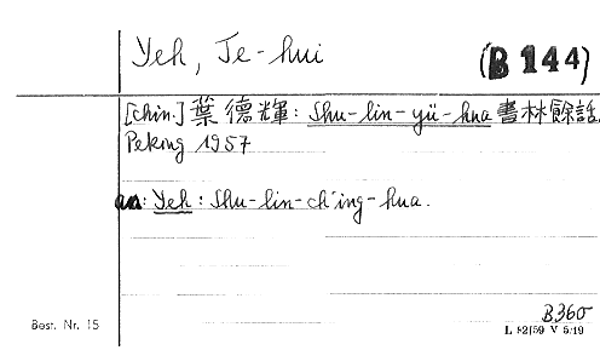 Yeh, Te-hui (B 144)
[chin.] 葉德輝: Shu-lin-yü-hua 書林餘話.
Peking 1957
an: Yeh: Shu-lin-ch'ing-hua.
B360
Best. Nr. 15 L 82/59 V 5/19